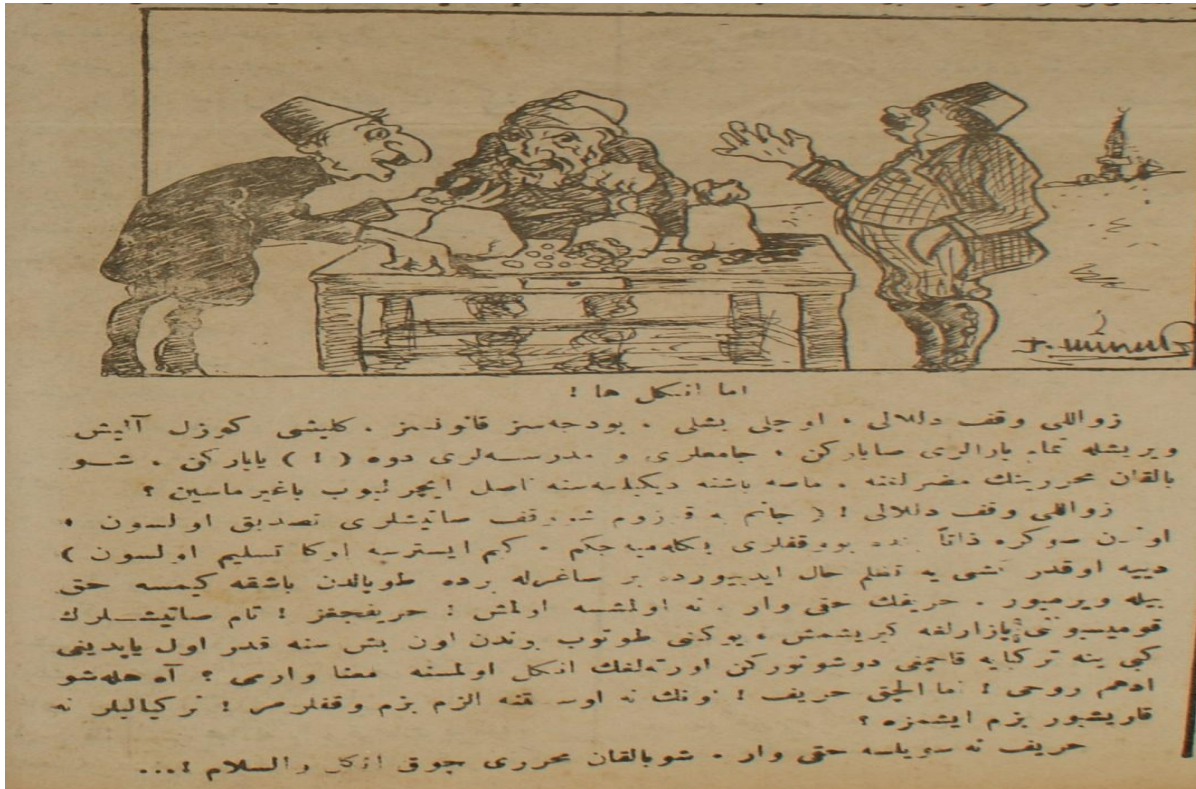 اما انكل ها !
زواللى وقف دللالى ، اوچلى بشلى ، بودجه‌سز قانونسز ، كليشى كوزل آليش
ويريشله تمام پارالرى صايار كن ، جامعلرى و مدرسه‌لرى دوه ( ! ) ياپاركن ، شو
بالقان محررينك مضرلغنه ، ماصه باشنه ديكيلمه‌سنه ناصل ايچرلييوب باغيرماسين ؟
زواللى وقف دللالى ! ( جانم به قوزوم شو وقف صاتيشلرى تصديق اولسون ،
اوندن صوكره ذاتاً بنده بو وقفلرى بكله‌ميه جكم . كيم ايسترسه اوكا تسليم اولسون )
دييه اوقدر حال ايدييورده بر صاغرله برده طوپالدن باشقه كيمسه حق
بيله ويرميور . حريفك حقى وار . نه اولمشسه اولمش ! حريفجغز ! تام صاتيشلرك
قوميسيوننى پازارلغه كيريشمش ، يوكنى طوتوب بوندن اون بش سنه قدر اول ياپدينى
كبى ينه تركيايه قاچمنى دوشونوركن اورته‌لغك انكل اولمسنه معنا وارمى ؟ آه هله شو
ادهم روحى ! اما الحق حريف ! اونك نه اوسته الزم بزم وقفلرمز ! تركياليلر نه
قاريشيور بزم ايشمزه ؟
حريف نه سويلسه حقى وار . شو بالقان محررى چوق انكل والسلام !...